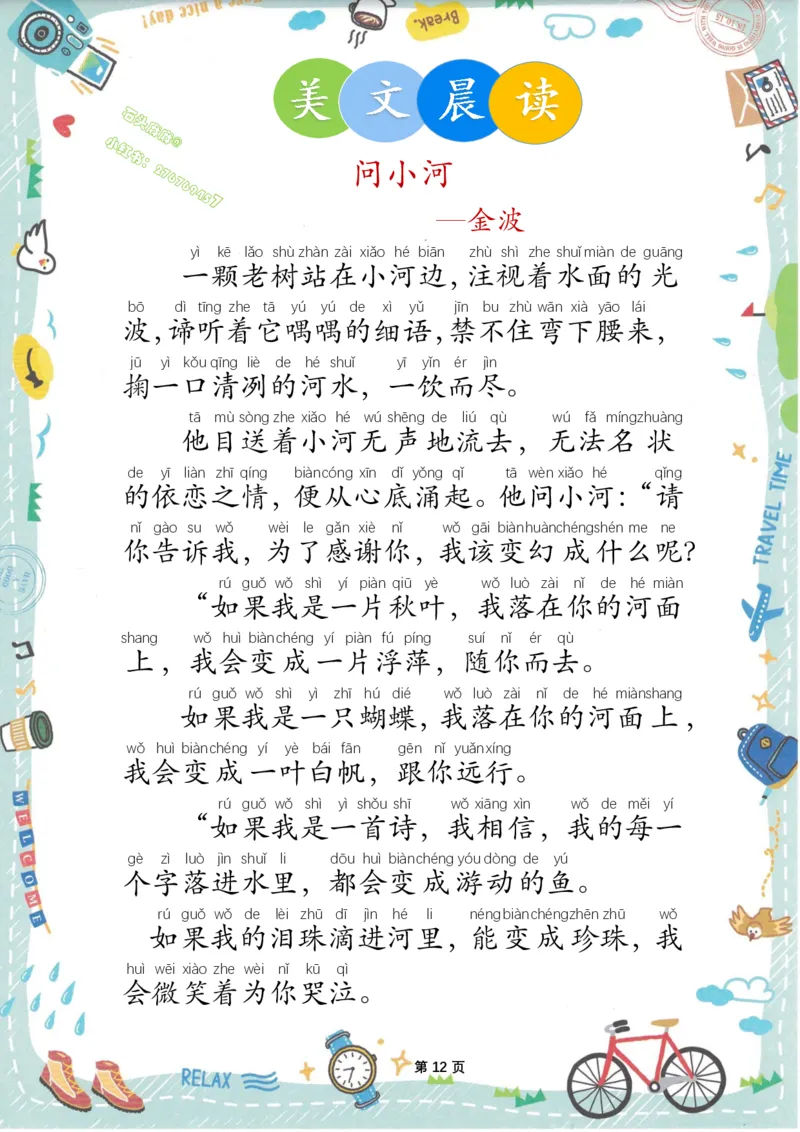 Have a nice day!
Break.
美文晨读
石头麻麻@
小红书：276769457
问小河
—金波
yì kē lǎo shù zhàn zài xiǎo hé biān zhù shì zhe shuǐ miàn de guāng
一颗老树站在小河边，注视着水面的光
bō dì tīng zhe tā yú yú de xì yǔ jīn bu zhù wān xià yāo lái
波，谛听着它喁喁的细语，禁不住弯下腰来，
jū yì kǒu qīng liè de hé shuǐ yī yǐn ér jìn
掬一口清冽的河水，一饮而尽。
tā mù sòng zhe xiǎo hé wú shēng de liú qù wú fǎ míngzhuàng
他目送着小河无声地流去，无法名状
de yī liàn zhī qíng biàncóng xīn dǐ yǒng qǐ tā wèn xiǎo hé qǐng
的依恋之情，便从心底涌起。他问小河：“请
nǐ gào su wǒ wèi le gǎn xiè nǐ wǒ gāi biànhuànchéngshén me ne
你告诉我，为了感谢你，我该变幻成什么呢？
rú guǒ wǒ shì yí piàn qiū yè wǒ luò zài nǐ de hé miàn
“如果我是一片秋叶，我落在你的河面
shang wǒ huì biànchéng yí piàn fú píng suí nǐ ér qù
上，我会变成一片浮萍，随你而去。
rú guǒ wǒ shì yì zhī hú dié wǒ luò zài nǐ de hé miànshang
如果我是一只蝴蝶，我落在你的河面上，
wǒ huì biànchéng yí yè bái fān gēn nǐ yuǎnxíng
我会变成一叶白帆，跟你远行。
rú guǒ wǒ shì yì shǒu shī wǒ xiāng xìn wǒ de měi yí
“如果我是一首诗，我相信，我的每一
gè zì luò jìn shuǐ li dōu huì biànchéng yóu dòng de yú
个字落进水里，都会变成游动的鱼。
rú guǒ wǒ de lèi zhū dī jìn hé li néngbiànchéngzhēn zhū wǒ
如果我的泪珠滴进河里，能变成珍珠，我
huì wēi xiào zhe wèi nǐ kū qì
会微笑着为你哭泣。
TRAVEL TIME
WELCOME
RELAX
第 12 页